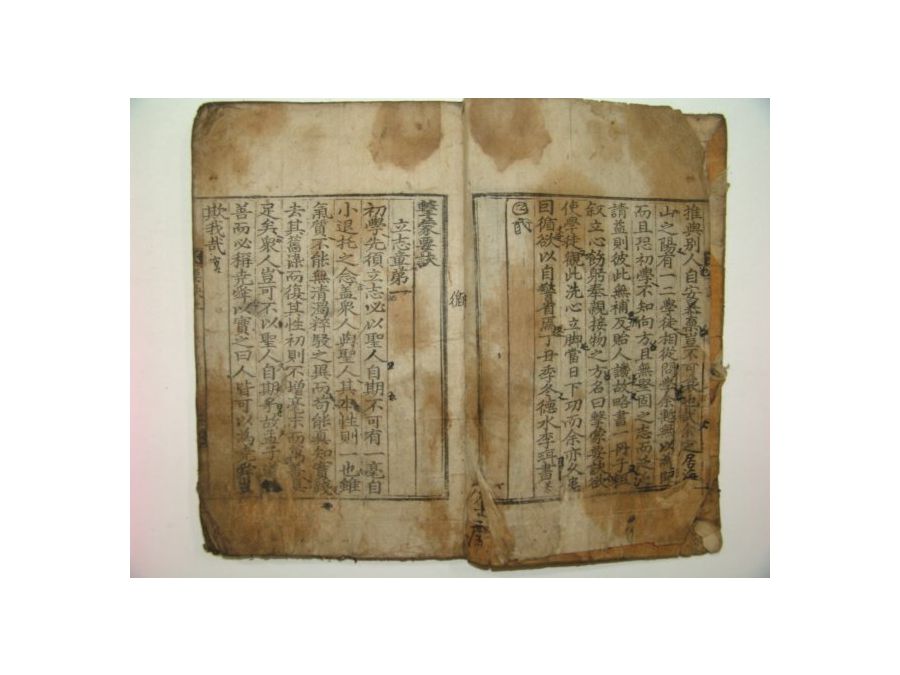 推與別人自安暴棄豈不可哀也哉余之居海
山之陽有一二學徒相從問學余慙無以爲師
而且恐初學不知向方且無堅固之志而
請益則彼此無補反貽人譏故略書一冊子
叙立心飭躬奉親接物之方名曰擊蒙要訣欲
使學徒觀此洗心立脚當日下功而余亦久患
因循欲以自警省焉丁丑季冬德水李珥書
擊蒙要訣
立志章第一
初學先須立志必以聖人自期不可有一毫自
小退托之念盖衆人與聖人其本性則一也雖
氣質不能無淸濁粹駁之異而苟能眞知實踐
去其舊染而復其性初則不增毫末而
足矣衆人豈可不以聖人自期乎故孟子
善而必稱堯舜以實之曰人皆可以爲堯舜豈
欺我哉